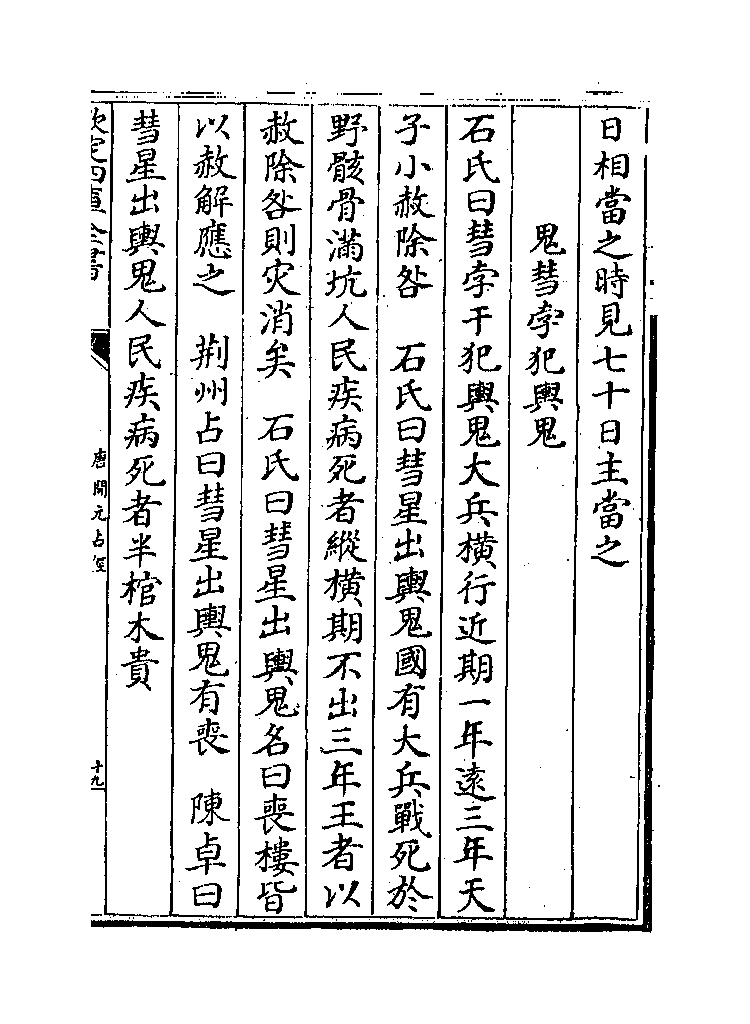 日相當之時見七十日主當之
鬼彗孛犯輿鬼
石氏曰彗孛干犯輿鬼大兵橫行近期一年遠三年天
子小赦除咎　石氏曰彗星出輿鬼國有大兵戰死於
野骸骨滿坑人民疾病死者縱橫期不出三年王者以
赦除咎則灾消矣　石氏曰彗星出輿鬼名曰喪樓皆
以赦解應之　荆州占曰彗星出輿鬼有喪　陳卓曰
彗星出輿鬼人民疾病死者半棺木貴
欽定四庫全書
唐開元占經
十九